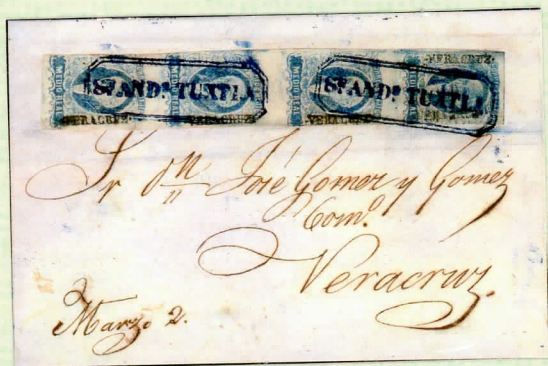 ·VERACRUZ·
Sⁿ ANDˢ TUXTLA Sⁿ ANDˢ TUXTLA
VERACRUZ· VERACRUZ· VERACRUZ·
Sr Dn José Gomez y Gomez
Como.
Veracruz.
Marzo 2.